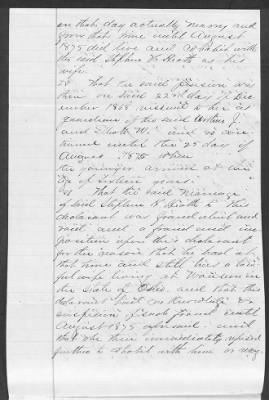 on that day actually marry and
from that time until August
1875 did live and cohabit with
the said Stephen B. as his
wife.
That the said Pension was
then on said day of Dec-
ember 1868 reissued to her as
guardian of the said Arthur J.
and W. and so con-
tinued until the 25 day of
August 1875 when
the younger arrived at the
age of sixteen years.
That the said marriage
of said Stephen B. to this
declarant was fraudulent and
void and a fraud and im-
position upon this declarant
for the reason that he had at
that time and still has a law-
ful wife living at in
the State of Ohio, and that this
declarant had no knowledge or
suspicion of such fraud until
August 1875 aforesaid and
that she then immediately refused
further to cohabit with him or